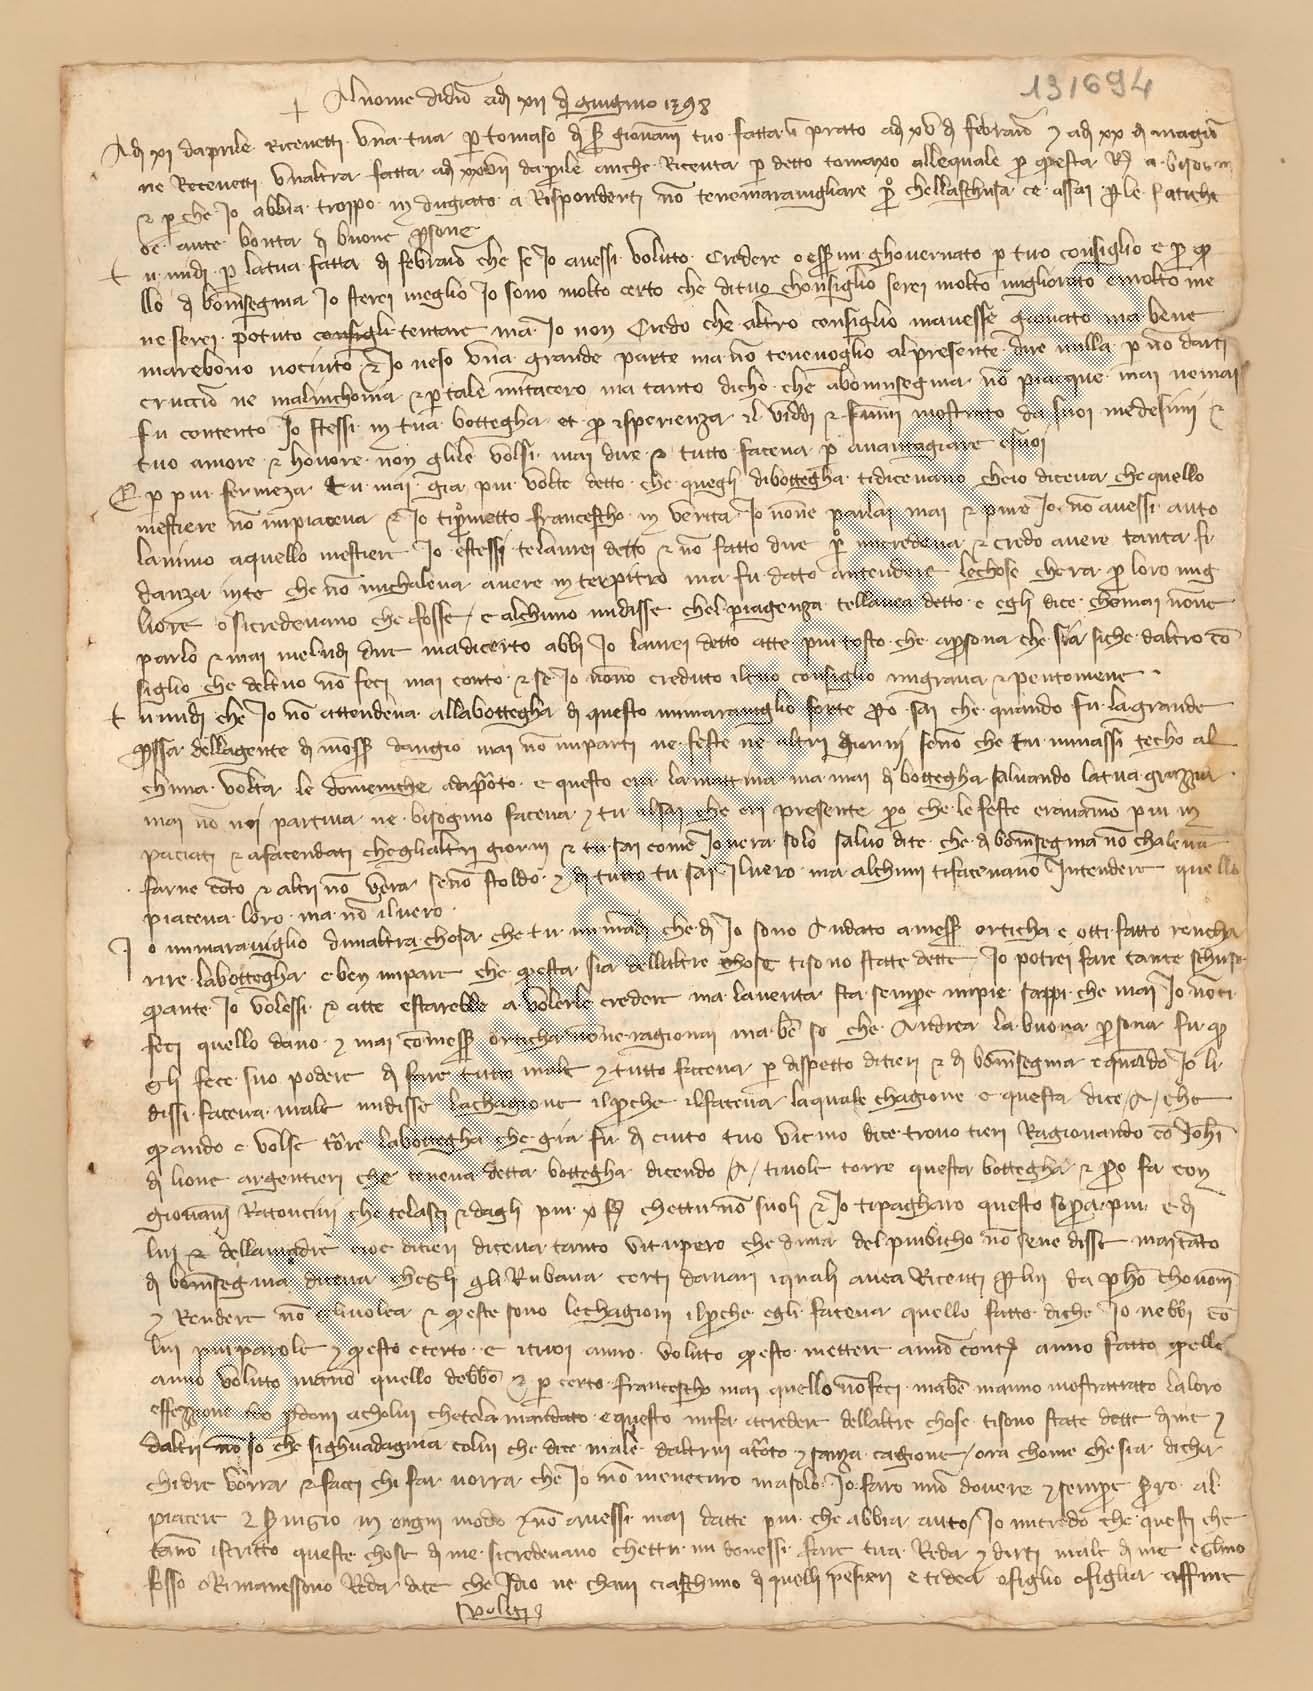 131694
+ Al nome di dio adi xii di giugnio 1398
Adi xi daprile ricevetti una tua per tomaso di ser giovani tuo fatta i prato adi xv di febraio e adi xx di magio
ne Ricevetti unaltra fatta adi xxvii daprile anche Ricevta per detto tomaxo allequale per questa
e per che Io abbia troppo indugiato a Risponderti no tene maravigliare pero chellaschusa ce assai per le fatiche
ōe aute bonta di buone persone
tu mi di per la tua fatta di febraio che se Io avessi voluto credere o esser mi ghovernato per tuo consiglio e per que
llo di boninsegnia Io sterei meglio Io sono molto certo che di tuo chonsiglio serei molto migliorato e molto me
ne serei potuto contentare ma Io non credo che altro consiglio mavesse giovato ma bene
marebono nociuto e Io ne so una grande parte ma no tene voglio al presente dire nulla per no darti
cruccio ne malinchonia e per tale mi tacero ma tanto dicho che a boninsegnia no piacque mai ne mai
fu contento Io stessi in tua bottegha et per isperienza il viddi e fumi mostrato da suoi medesimi e
tuo amore e honore non glile volsi mai dire e tutto faceva per avantagiare e suoi
E per piu fermeza tu mai gia piu volte detto che quegli di bottegha ti dicevano cheio diceva che quello
mestiere no mi piaceva e Io ti prometto francescho in verita Io none parlai mai e pure Io no avessi auto
lanimo a quello mestiere Io estessi telavrei detto e no fatto dire pero mi credeva e credo avere tanta fi
danza in te che no mi chaleva avere interpitro ma fu dato antendere lechose chera per loro mig
liore o si credevano che fosse / e alchuno mi disse chel piagenza tellavea detto e egli dice che mai none
parlo e mai meludi dire ma di certo abbi Io lavrei detto atte piu tosto che a persona che sia siche daltro co
siglio che del tuo no feci mai conto e se Io nono creduto il tuo consiglio mi grava e pentomene
tu mi di che Io no attendeva alla bottegha di questo mi maraviglio forte pero sai che quando fu la grande
pressa della gente di messer dangio mai no mi parti ne feste ne altri giorni seno che tu mi menassi techo al
chuna volta le domeniche a diporto e questo era la mattina ma mai di bottegha salvando la tua grazia
mai no mi partiva ne bisognio faceva e tu il sai che eri presente pero che le feste eravamo piu in
paciati e afacendati che gli altri giorni e tu sai come Io vera solo salvo di te che di boninsegnia no chaleva
farne coto e altri no vera seno stoldo e di tutto tu sai il vero ma alchuni ti facevano Intendere quello
piaceva loro ma no il vero
Io mi maraviglio dunaltra chosa che tu mi mādi che di Io sono andato a messer orticha e otti fatto rincha
rire la bottegha e ben mi pare che questa sia dellaltre chose ti sono state dette Io potrei fare tante schuse
quante Io volessi e atte estarebbe a volerle credere ma la verita sta sempre in pie sappi che mai Io noti
feci quello dano e mai co messer orticha none ragionai ma be so che Andrea la buona persona fu que
gli fece suo podere di fare tutto male e tutto faceva per dispetto di tieri e di boninsegnia e quando Io li
dissi faceva male mi disse la chagione il perche il faceva la quale chagione e questa dice A / che
quando e volse torre la bottegha che gia fu di ciuto tuo vicino dice trovo tieri Ragionando co Johi
di lione argentieri che teneva detta bottegha dicendo A / ti vole torre questa bottegha e pero fa con
giovani Ratoncini che te lasci e dagli piu x fior chettu no suoli e Io ti pagharo questo sopra piu e di
lui e della cioe di tieri diceva tanto vitupero che duna del piubicho no sene disse mai tāto
di boninsegnia diceva chegli gli Rubava certi danari i quali avea Ricevti per lui da
e Rendere no gli volea e queste sono le chagioni il perche egli faceva quello fatto di che Io nebbi co
lui piu parole e questo e certo e i tuoi anno voluto questo mettere a mio conto anno fatto quello
anno voluto meno quello debbo e per certo francescho mai quello no feci ma be manno mostrattato la loro
effezione Ido perdoni a cholui chetela mandato e questo mi fa credere dellaltre chose ti sono state dette di me e
daltri no so che si ghuadagnia colui che dice male daltrui a torto e sanza cagione / ora chome che sia dicha
chi dir vorra e faci chi far vorra che Io no mene curo ma solo Io faro mio dovere e sempre sero al
piacere e servigio in ongni modo e no avessi mai datte piu che abbia auto / Io mi credo che questi che
tano iscritto queste chose di me si credevano chettu mi dovessi fare tua Reda e dirti male di me e glino
fosso o Rimanessono Reda di te che Idio ne chavi ciaschuno di quelli pensieri e ti dea o figlio o figlia affine
volgi